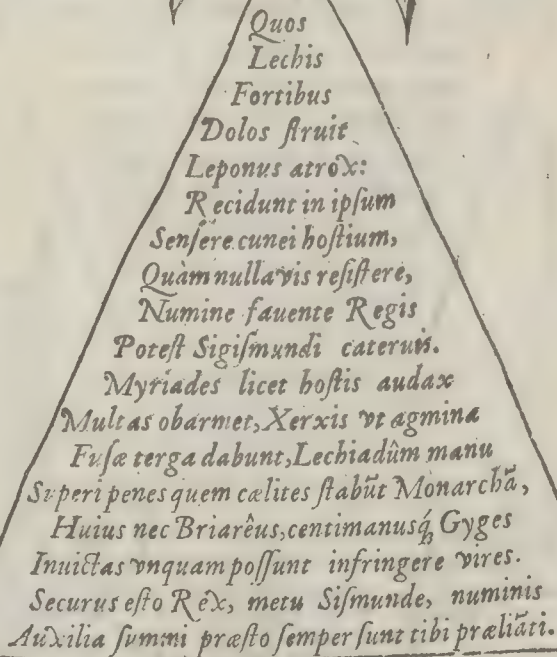 Quos
Lechis
Fortibus
Dolos ſtruit
Leponus atrox:
Recidunt in ipſum
Senſêre cunei hoſtium,
Quàm nulla vis reſiſtere,
Numine fauente Regis
Poteſt Sigiſmundi cateruis.
Myriades licet hoſtis audax
Multas obarmet, Xerxis vt agmina
Fuſæ terga dabunt, Lechiadûm manu
Superi penes quem cælites ſtabūt Monarchã,
Huius nec Briarêus, centimanusq́ꝫ Gyges
Inuictas vnquam poſſunt infringere vires.
Securus eſto Rex, metu Siſmunde, numinis
Auxilia ſummi præſto ſemper ſunt tibi præliãti.